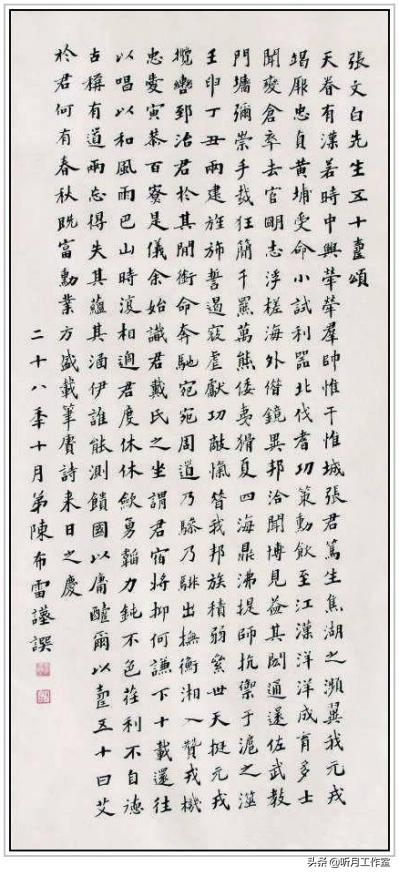 張文白先生五十壽頌
天眷有漢若時中興犖犖羣帥惟干惟城張君篤生焦湖之瀕翼我元戎
竭靡忠貞黃埔受命小試利器北伐耆功策勳飲至江漢洋洋成育多士
聞變倉卒去官明志浮槎海外借鏡異邦洽聞博見益其閎通還佐武教
門墻彌崇手栽狂簡千羆萬熊倭夷猾夏四海鼎沸提師抗禦于滬之澨
壬申丁丑兩建旌旆誓遏寇虐獻功敵愾昔我邦族積弱絫世天挺元戎
攬轡郅治君於其間銜命奔馳宛宛周道乃驂乃騑出撫衡湘入贊戎機
忠愛寅恭百寮是儀余始識君戴氏之坐謂君宿將抑何謙下十載還往
以唱以和風雨巴山時復相過君度休休歛勇韜力鈍不色莊利不自德
古稱有道兩忘得失其蘊其涵伊誰能測饋國以庸醻爾以壽五十曰艾
於君何有春秋旣富勳業方盛載筆賡詩来日之慶
二十八年十月弟陳布雷謹譔
头条@听月工作室